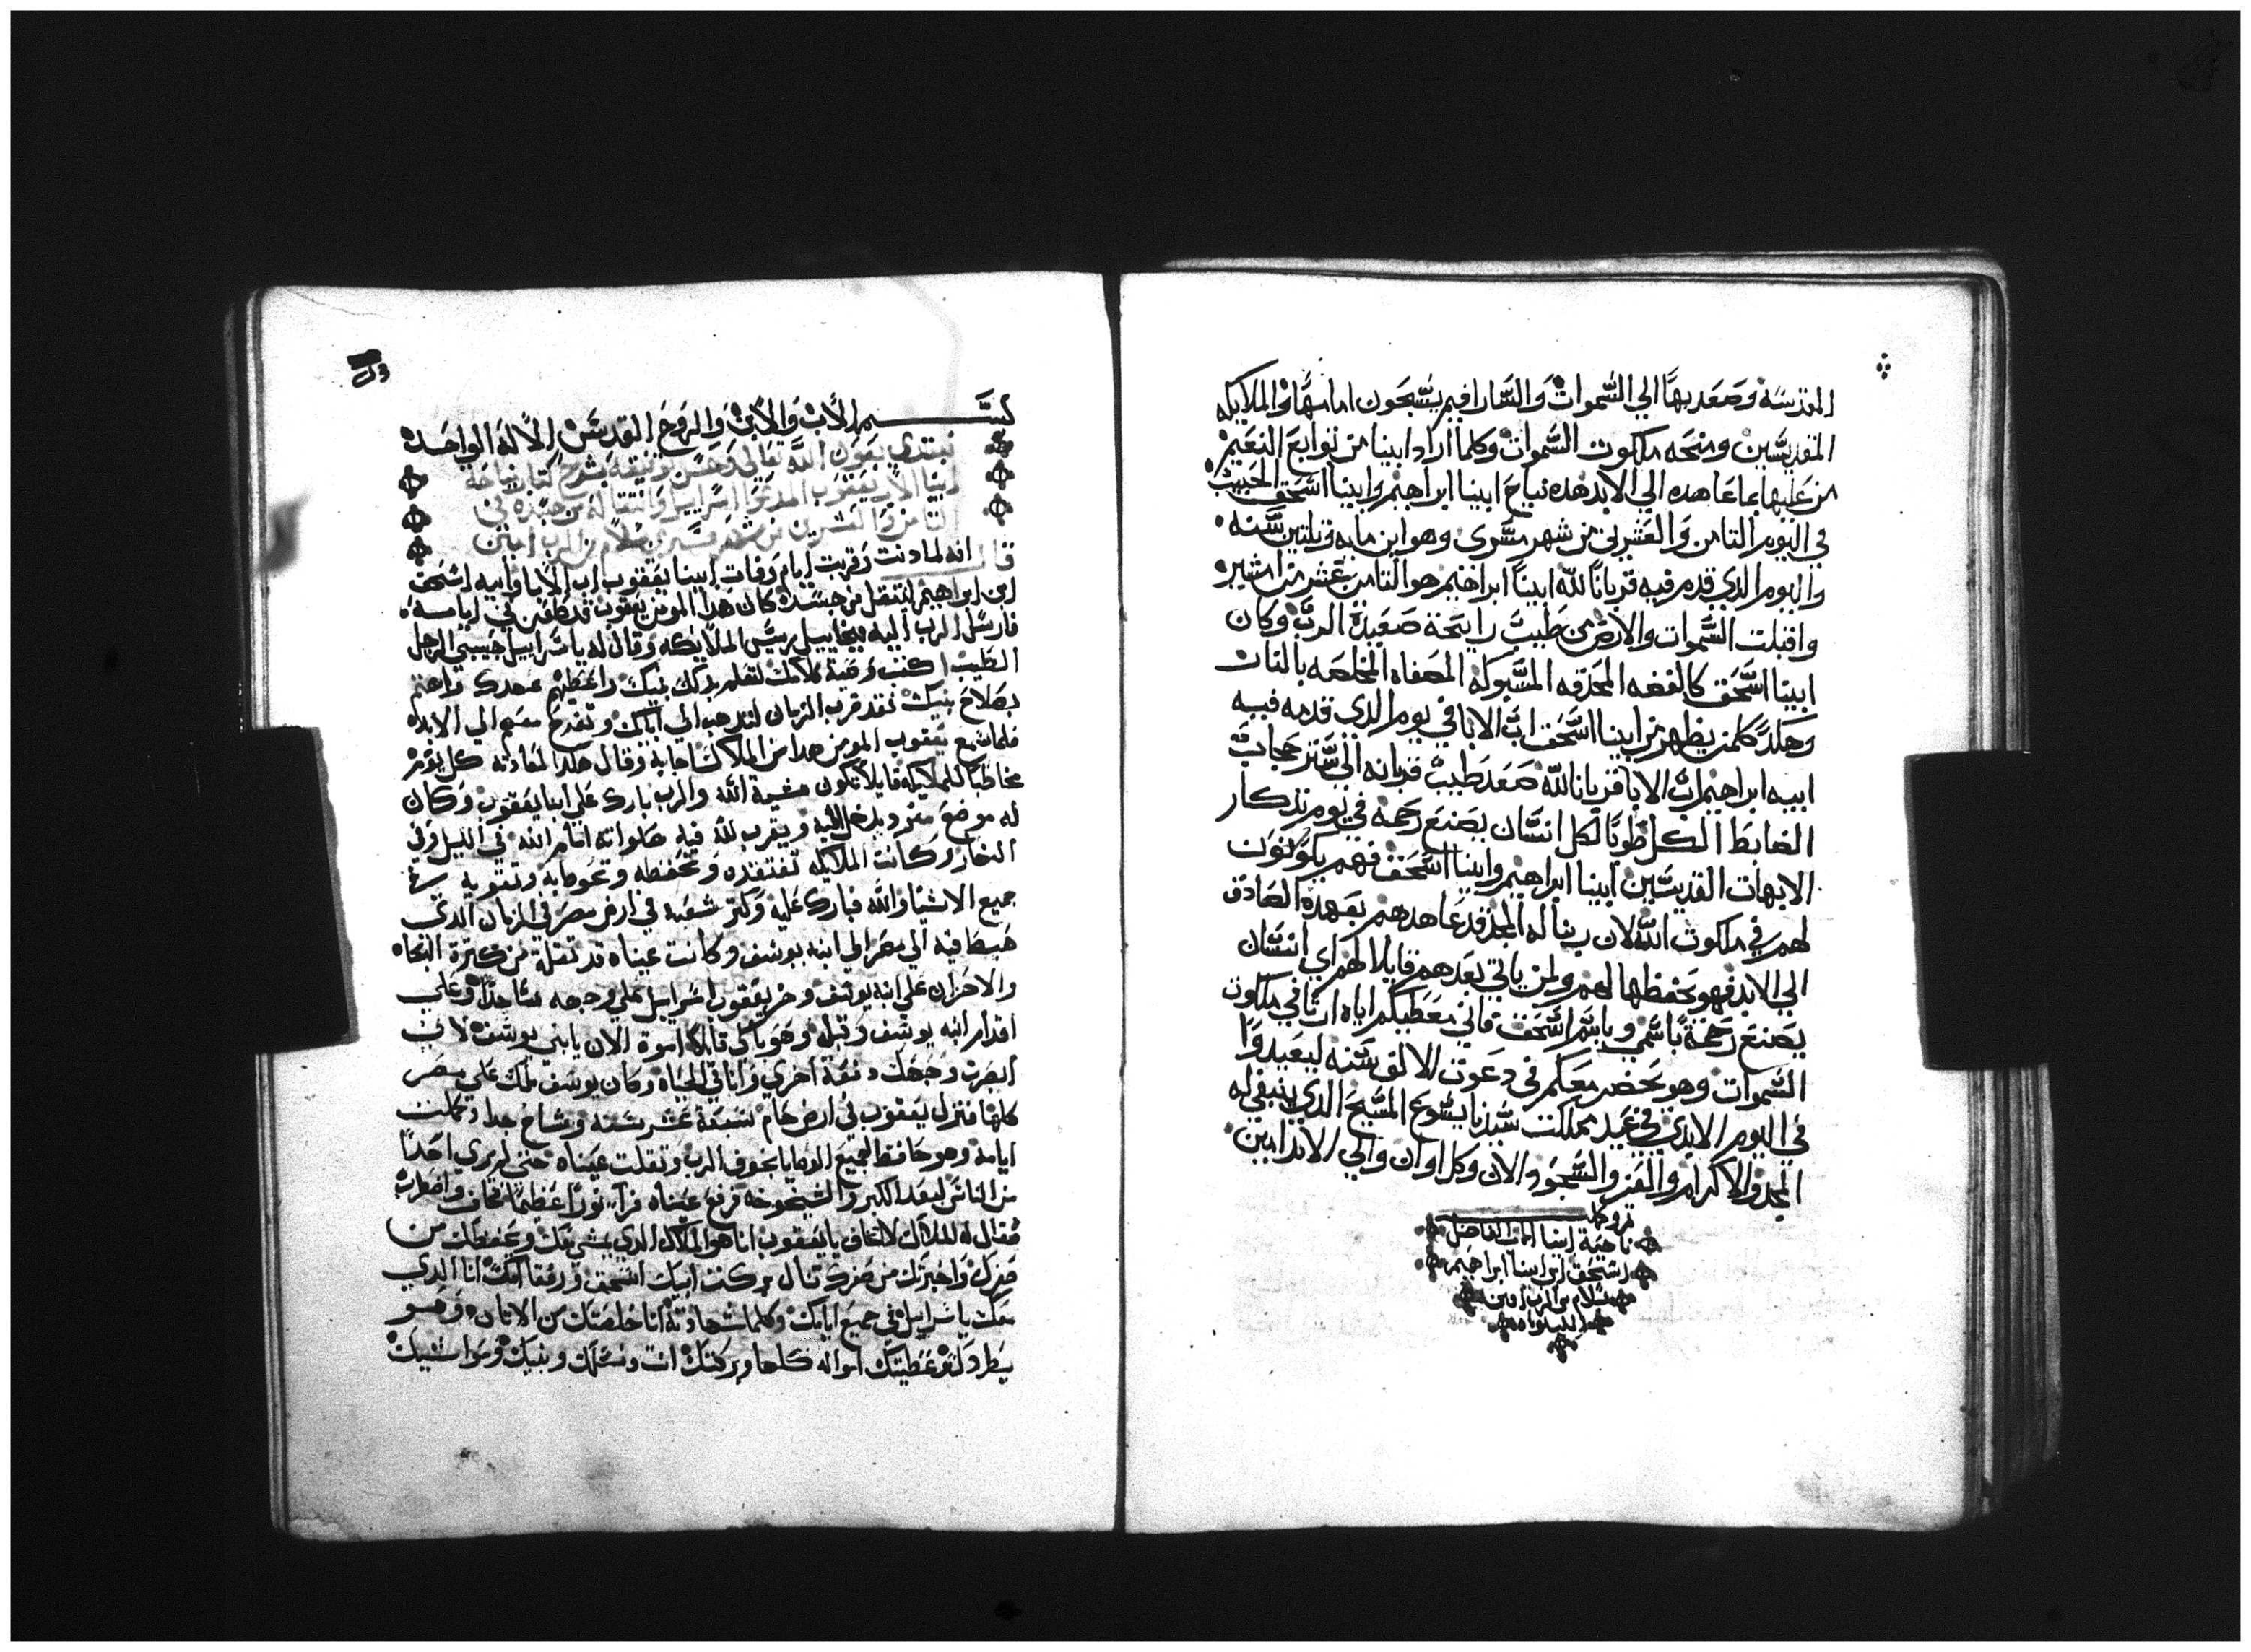 المقدسه وصعد بها الي السموات والسارافيم يسبحون امامها والملايكه
المقديسين ومنحه ملكوت السموات وكلما اراد ابينا من توابع النعيم
من عليها بما عاهده الي الابد هده نياح ابينا ابراهيم وابينا اسحق الحبيب
في اليوم التامن والعشرين من شهر مسرى وهو ابن مايه وتلتين سنه
واليوم الدي قدم فيه قربانا لله ابينا ابراهيم هو التامن عشر من امشير
واقبلت السموات والارض من طيب رايحة صعيدة الرب وكان
ابينا اسحق كالفضه المحرقه المسبوكه المصفاه المخلصه بالنار
وهكدي كلمن يظهر من ابينا اسحق اب الابا في يوم الدي قدمه فيه
ابيه ابراهيم اب الابا قربانا لله صعد طيب قربانه الي ستر حجاب
الضابط الكل طوبا لكل انسان يصنع رحمه في يوم تدكار
الابهات القديسين ابينا ابراهيم وابينا اسحق فهم يكونون
لهم في ملكوت الله لان ربنا له المجد قد عاهدهم بعهده الصادق
الي الابد فهو يحفظها لهم ولمن ياتي بعدهم قايلا لهم اي انسان
يصنع رحمة باسمي وباسم اسحق فاني معطيكم اياه ابنا في ملكوت
السموات وهو يحضر معكم في دعوت الالف سنه ليعيدوا
في اليوم الابدي في عيد مملكت سيدنا يسوع المسيح الدي ينبغي له
المجد والاكرام والعز والسجود الان وكل اوان والي الابد امين
تم وكمل
ناحية ابينا الاب الفاضل
اسحق ابن ابينا ابراهيم
بسلام من الرب امين
الليلوياه
بسم الاب والابن والروح القدس الالاه الواحده
نبتدي بعون الله تعالي وحسن توفيقه بشرح كتاب نياحة
ابينا الاب يعقوب المدعوا اسراييل وانتقاله من جسده في
التامن والعشرين من شهر مسري بسلام من الرب امين
قال انه لما دنت وقربت ايام وفات ابينا يعقوب اب الابا وابيه اسحق
ابن ابراهيم لينتقل من جسده كان هدا المومن يعقوب قد طعن في ايامه
فارسل الرب اليه ميخاييل ريس الملايكه وقال له يا سراييل حبيبي الرجل
الطيب اكتب وصية كلامك لتعلم بدلك بنيك واعطيهم عهدك واهتم
بصلاح بنيك فقد قرب الزمان لتدهب الي اباك وتفرح معهم الي الابد
فلما سمع يعقوب المومن هدا من الملاك اجابه وقال هكدا لعادته كل يوم
مخاطبا للملايكه قايلا تكون مشية الله والرب بارك علي ابينا يعقوب وكان
له موضع منفرد يدخل اليه ويقرب لله فيه صلواته امام الله في الليل وفي
النهار وكانت الملايكه تفتقده وتحفظه وتعوهابه وتقويه في
جميع الاشيا والله فبارك عليه وكتر شعبه في ارض مصر في الزمان الدي
هبط فيه الي مصر الي ابنه يوسف وكانت عيناه قد تقلة من كترة البكاه
والاحزان علي ابنه يوسف وخر يعقوب اسراييل علي وجهه ساجدا وعلي
اقدام ابنه يوسف وقبله وهو باكي قايلا اموة الان يا بني يوسف لاني
ابصرت وجهك دفعة اخري وانا في الحياه وكان يوسف ملك علي مصر
كلها فنزل يعقوب في ارض حام سبعة عشر سنه وشاخ جدا وكملت
ايامه وهو حافظ لجميع الوصايا بخوف الرب وتقلت عيناه حتي لم يري احدا
من الناس لبعد الكبر والشيخوخه فرفع عيناه فراي نورا عظيما فخاف واضطرب
فقال له الملاك لا تخاف يا يعقوب انا هو الملاك الدي يمشي معك ويحفظك من
صغرك واخبرتك من صغرك تنال بركت ابيك اسحق ورفقا امك انا الدي
معك يا سراييل في جميع اباتك وكلما شهادته انا خلصتك من لابان وهو
يطردك وعطيتك امواله كلها وبركتك انت ونسلك وبنيك ومواشيك